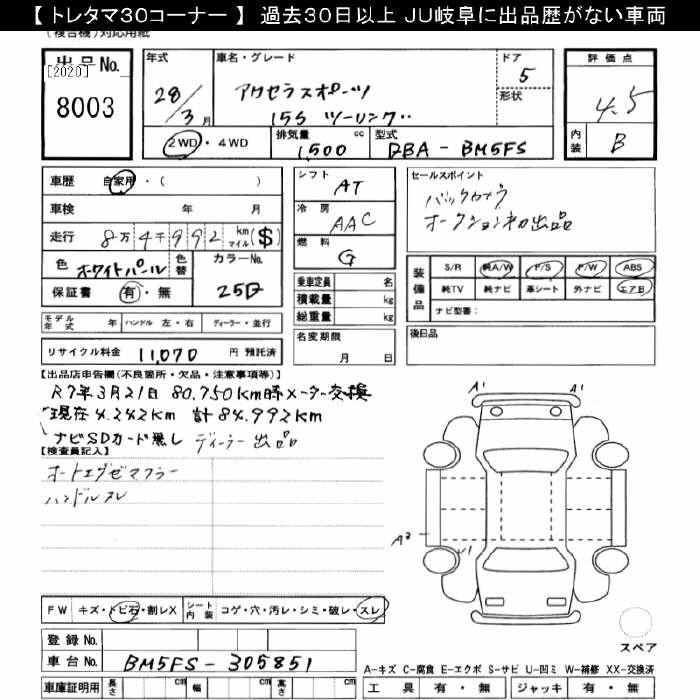 【 トレタマ30コーナー 】 過去30日以上 JU岐阜に出品歴がない車両
(複合機)対応用紙
出品No.
[2020]
8003
年式 28/3月
車名・グレード アクセラスポーツ
15S ツーリング
ドア 5
形状
評価点 4.5
内装 B
2WD・4WD
排気量 1,500 cc
型式 DBA-BM5FS
車歴 自家用・( )
車検 年 月
走行 8万4千992 km マイル ($)
色 ホワイトパール 色替
カラーNo. 25D
保証書 有・無
モデル年式 年 ハンドル 左・右 ディーラー・並行
リサイクル料金 11,070 円 預託済
シフト AT
冷房 AAC
燃料 G
乗車定員 名
積載量 kg
総重量 kg
名変期限
月 日
セールスポイント
バックカメラ
オークション初出品
装備品
S/R 純A/W P/S P/W ABS
純TV 純ナビ 革シート 外ナビ エアB
ナビ型番:
後日品
【出品店申告欄(不良箇所・欠品・注意事項等)】
R7年3月21日 80,750km時メーター交換
現在 4,242km 計84,992km
ナビSDカード無し ディーラー出品
【検査員記入】
オートエグゼマフラー
ハンドルスレ
A' A'
A2
W1
FW キズ・トビ石・割レX シート内装 コゲ・穴・汚レ・シミ・破レ・スレ
登録No.
車台No. BM5FS-305851
車庫証明用 長さ cm 幅 cm 高さ cm
スペア
A-キズ C-腐食 E-エクボ S-サビ U-凹ミ W-補修 XX-交換済
工具 有・無 ジャッキ 有・無